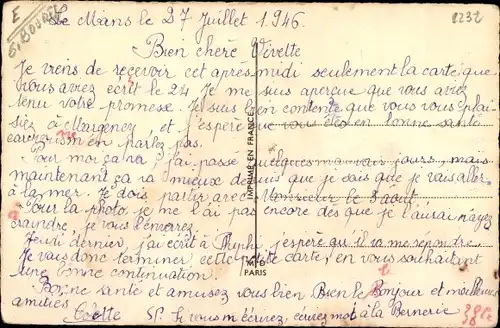 Le Mans le 27 Juillet 1946.
2232
E
G. BOURGE
Bien chère Vivette
Je viens de recevoir cet après midi seulement la carte que
vous aviez écrit le 24 Je me suis aperçue que vous avez
tenu votre promesse. Je suis bien contente que vous vous plai
siez à et j'espère que vous êtes en bonne santé
car vous n'en parlez pas.
Pour moi ça va j'ai passé quelques mauvais jours, mais
maintenant ça va mieux depuis que je sais que je vais aller
à la mer. Je dois partir avec Monsieur le 3 août.
Pour la photo, je ne l'ai pas encore dès que je l'aurai n'ayez
crainte, je vous l'enverrez.
Jeudi dernier, j'ai écrit à j'espère qu'il va me répondre.
Je vais donc terminer cette petite carte, en vous souhaitant
une bonne continuation.
Bonne santé et amusez vous bien Bien le Bonjour et meilleures
amitiés
Colette SP. Si vous m'écrivez, écrivez moi à la Bernerie
IMPRIMÉ EN FRANCE
M-D
PARIS